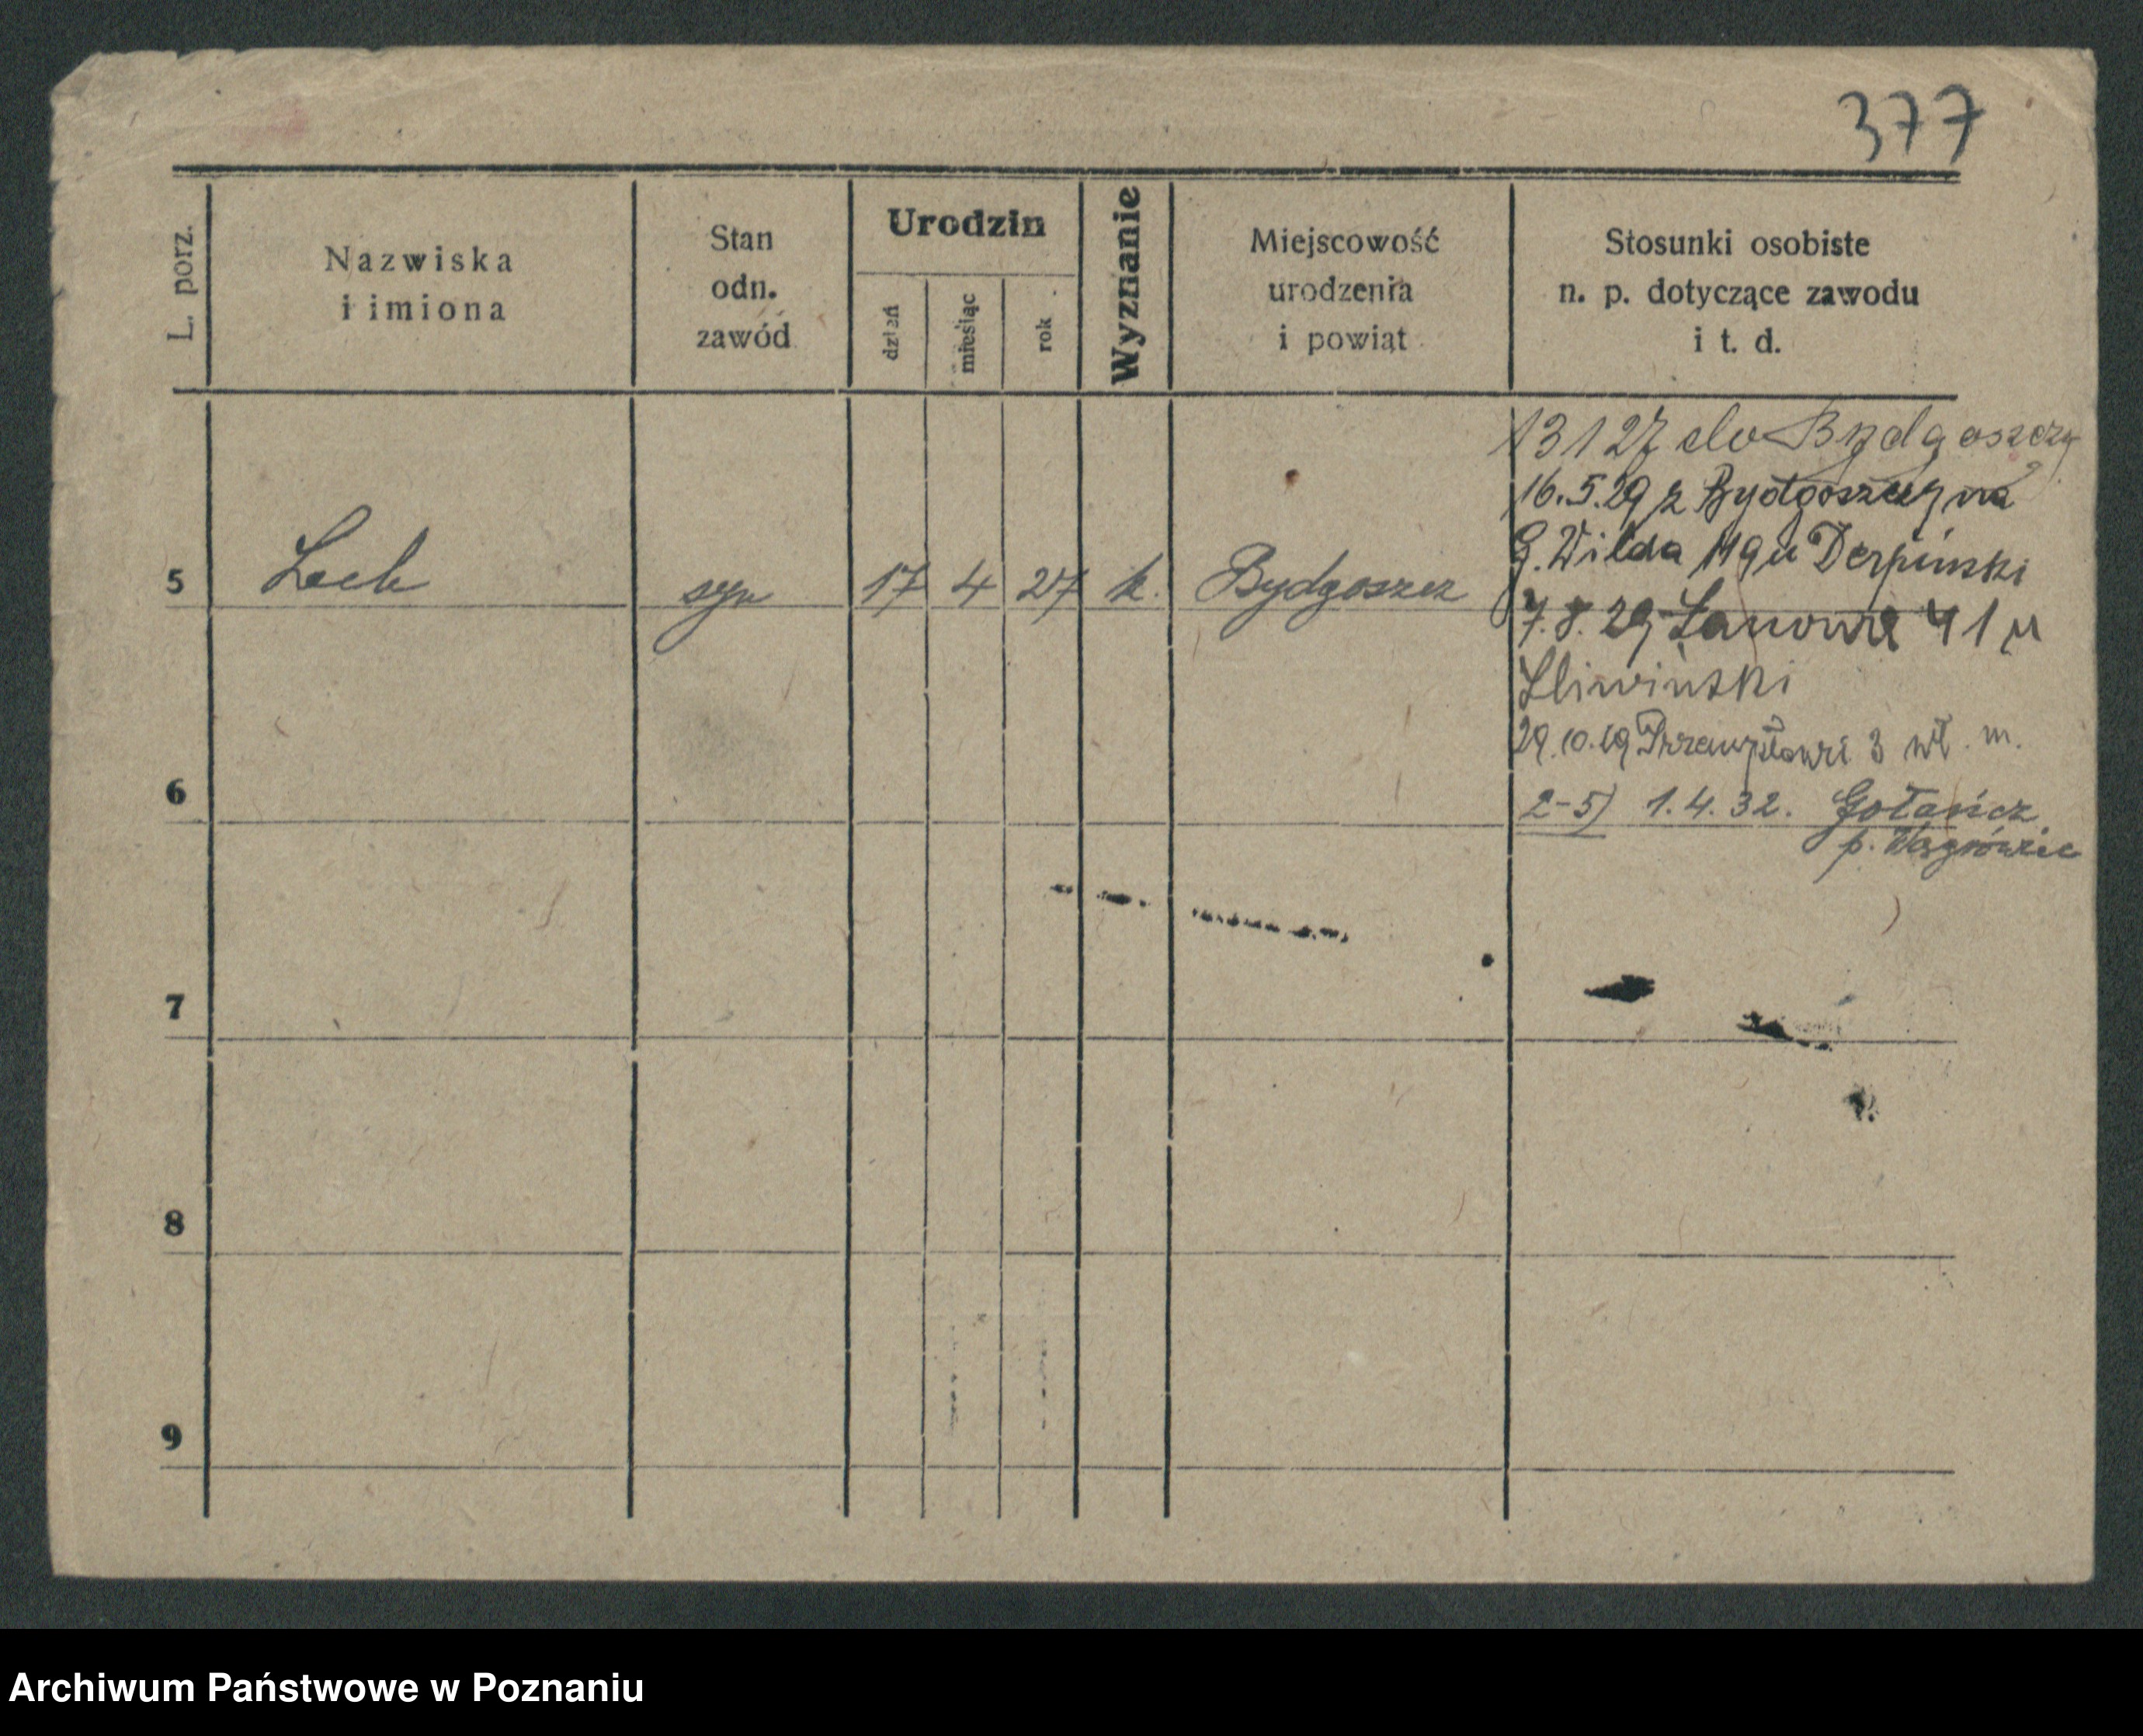 377
L. porz.
Nazwiska
i imiona
Stan
odn.
zawód
Urodzin
dzień
miesiąc
rok
Wyznanie
Miejscowość
urodzenia
i powiat
Stosunki osobiste
n. p. dotyczące zawodu
i t. d.
5 Lech syn 17 4 27 k. Bydgoszcz
13 1 27 do Bydgoszczy
16.5.29 z Bydgoszczy na
G. Wilda 119 u Derpinski
7.8.29 Łanowa 41 u
Sliwiński
29.10.29 3 wł. m.
2-5) 1.4.32. Gołańcz
p. Wągrówiec
6
7
8
9
Archiwum Państwowe w Poznaniu